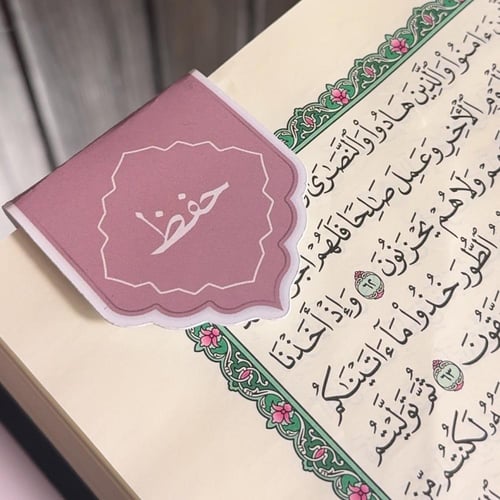 حفظ
ءَامَنُوا۟ وَٱلَّذِينَ هَادُوا۟ وَٱلنَّصَـٰرَىٰ
ٱلْـَٔاخِرِ وَعَمِلَ صَـٰلِحًا فَلَهُمْ
وَلَا هُمْ يَحْزَنُونَ ٦٢ وَإِذْ أَخَذْنَا
ٱلطُّورَ خُذُوا۟ مَآ ءَاتَيْنَـٰكُم
٦٣ ثُمَّ تَوَلَّيْتُم
لَكُنتُم مِّنَ